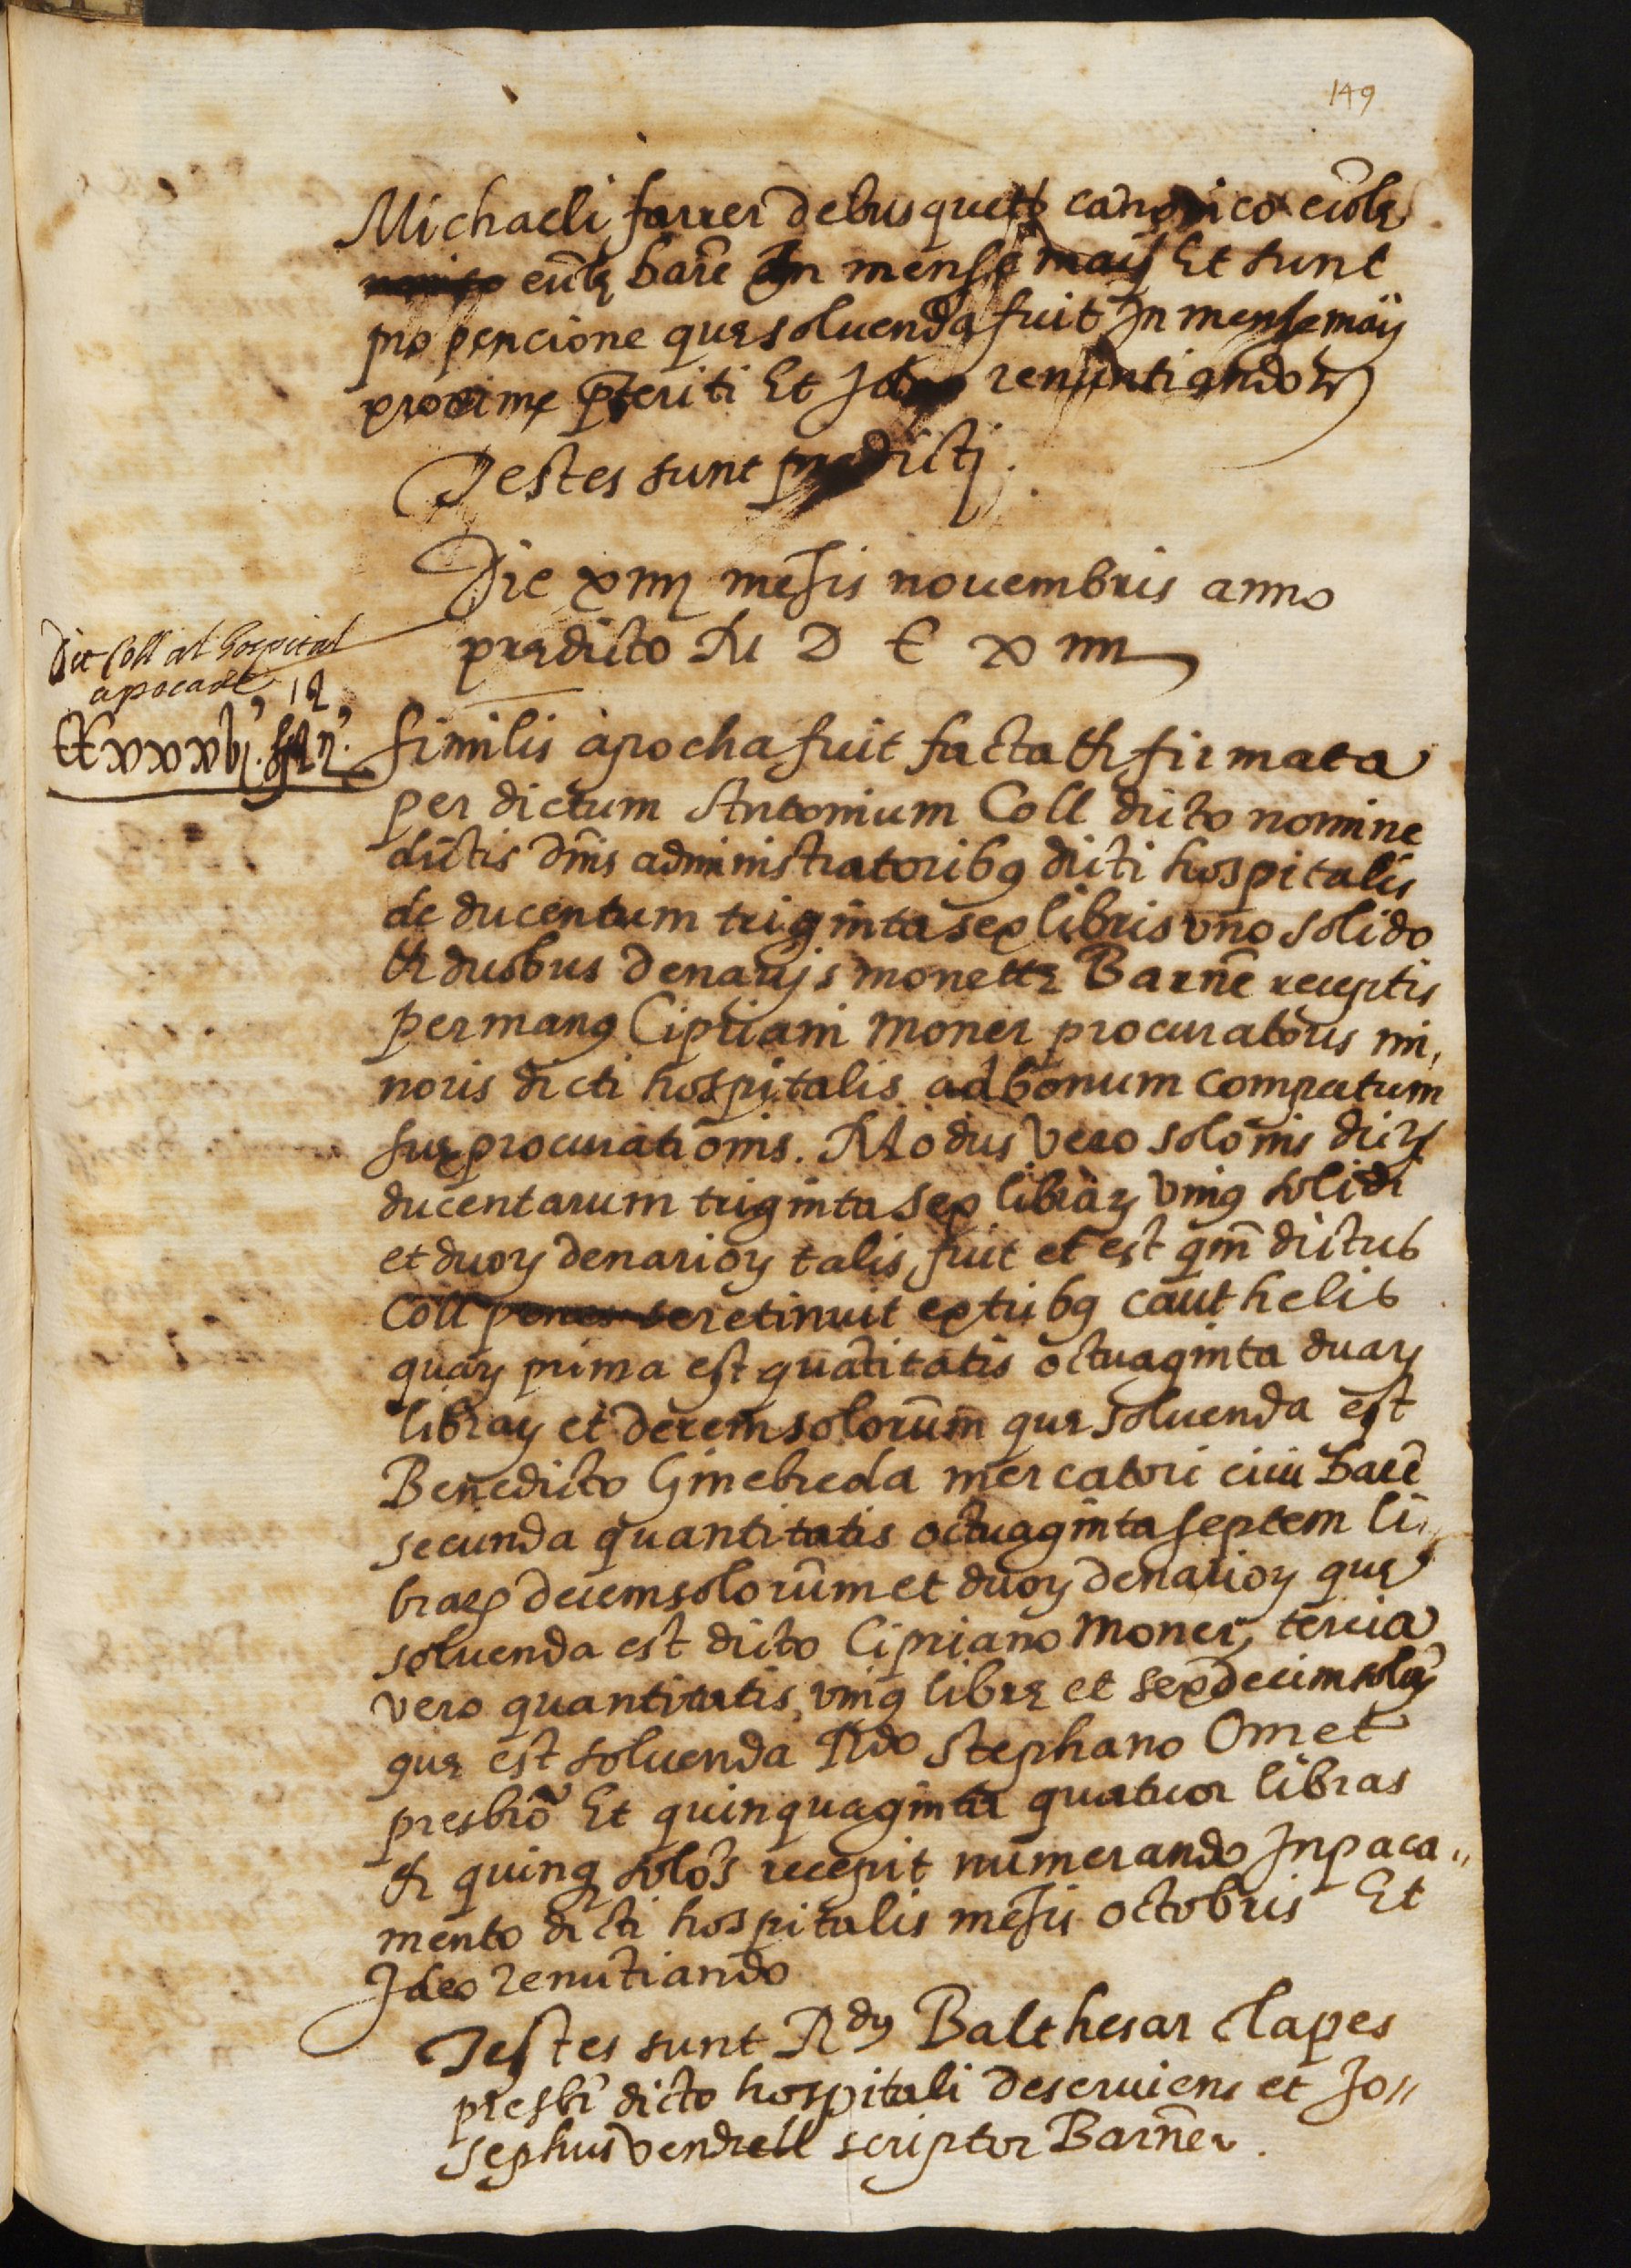 149
Michaeli farrer debusquets canonico
eccłę barñe In mense maij Et sunt
pro pencione quę soluenda fuit In mense maij
proxime p̄teriti Et Ideo renuntiando &
Testes sunt predicti.
Die xiiij mēsis nouembris anno
prędicto M D C x iiii
Dit Coll al hospital
apocade
CCxxxvj. 
Similis apocha fuit facta & firmata
per dictum Antonium Coll dicto nomine
dictis dn̄is administratoribꝯ dicti hospitalis
de ducentum triginta sex libris vno solido
& duobus denarijs monetę Barñe receptis
per manꝯ Cipriani Moner procuratoris mi,
noris dicti hospitalis ad bonum computum
suę procurationis. Modus vero solōnis dictꝝ
ducentarum triginta sex librarꝝ vniꝯ solidi
et duoꝝ denarioꝝ talis fuit et est qm̄ dictus
Coll penes se retinuit ex tribꝯ cauthelis
quaꝝ prima est quātitatis octuaginta duaꝝ
libraꝝ et decem solorūm quę soluenda est
Benedicto Ginebreda mercatori ciui barñe
secunda quantitatis octuaginta septem li,
braꝝ decem solorūm et duoꝝ denarioꝝ quę
soluenda est dicto Cipriano Moner, tercia
vero quantitatis vniꝯ librę et sexdecim soloꝝ
quę est soluenda Rdo Stephano Omet
presbrō Et quinquaginta quatuor libras
& quinqꝫ solōs recepit numerando In paca„
mento dicti hospitalis mēsis octobris Et
Ideo renūtiando
Testes sunt Rdꝯ Balthesar Clapes
presbr̄ dicto hospitali deseruiens et Jo„
sephus Vendrell scriptor Barñe.